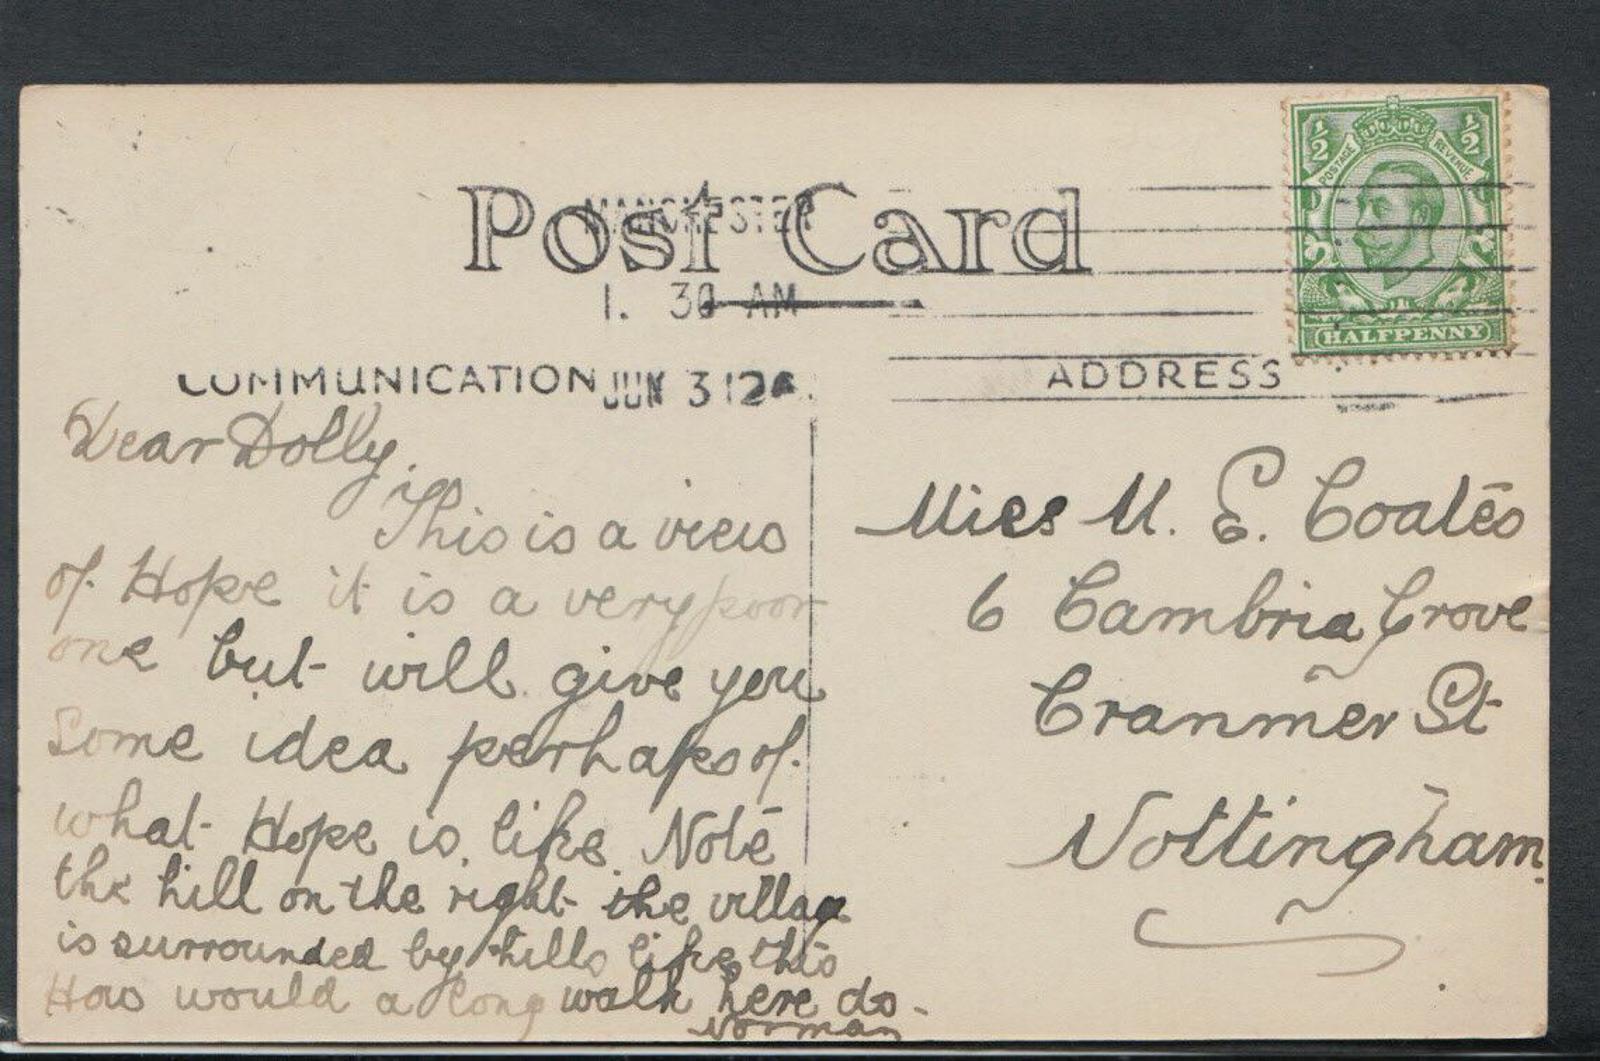 Post Card
MANCHESTER
1. 30 AM
JUN 3 12
COMMUNICATION
ADDRESS
1/2 1/2
POSTAGE REVENUE
HALFPENNY
Dear Dolly.
This is a view
of Hope it is a very poor
one but will give you
some idea perhaps of
what Hope is like Note
the hill on the right the village
is surrounded by hills like this
How would a long walk here do -
Norman
Miss M. E. Coates
6 Cambria Grove
Cranmer St
Nottingham.